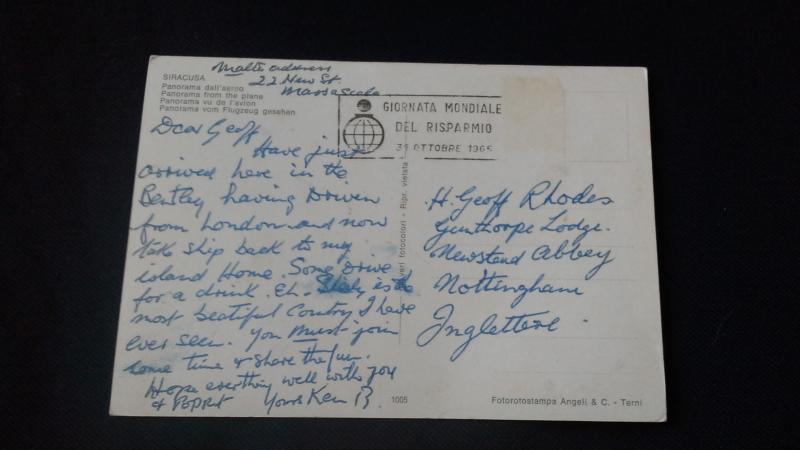 SIRACUSA
Panorama dall'aereo
Panorama from the plane
Panorama vu de l'avion
Panorama vom Flugzeug gesehen
Malta address
22 New St.
GIORNATA MONDIALE
DEL RISPARMIO
31 OTTOBRE 1965
Dear Geoff
Have just
arrived here in the
Bentley having Driven
from London and now
take ship back to my
island Home. Some Drive
for a drink. Eh. is the
most beatiful Contry I have
ever seen. You Must join
some time & share the fun.
Hope everything well with you
& Yours Ken B.
veri fotocolori - Ripr. vietata
H. Geoff Rhodes
Lodge.
Newstead Abbey
Nottingham
1005
Fotorotostampa Angeli & C. - Terni